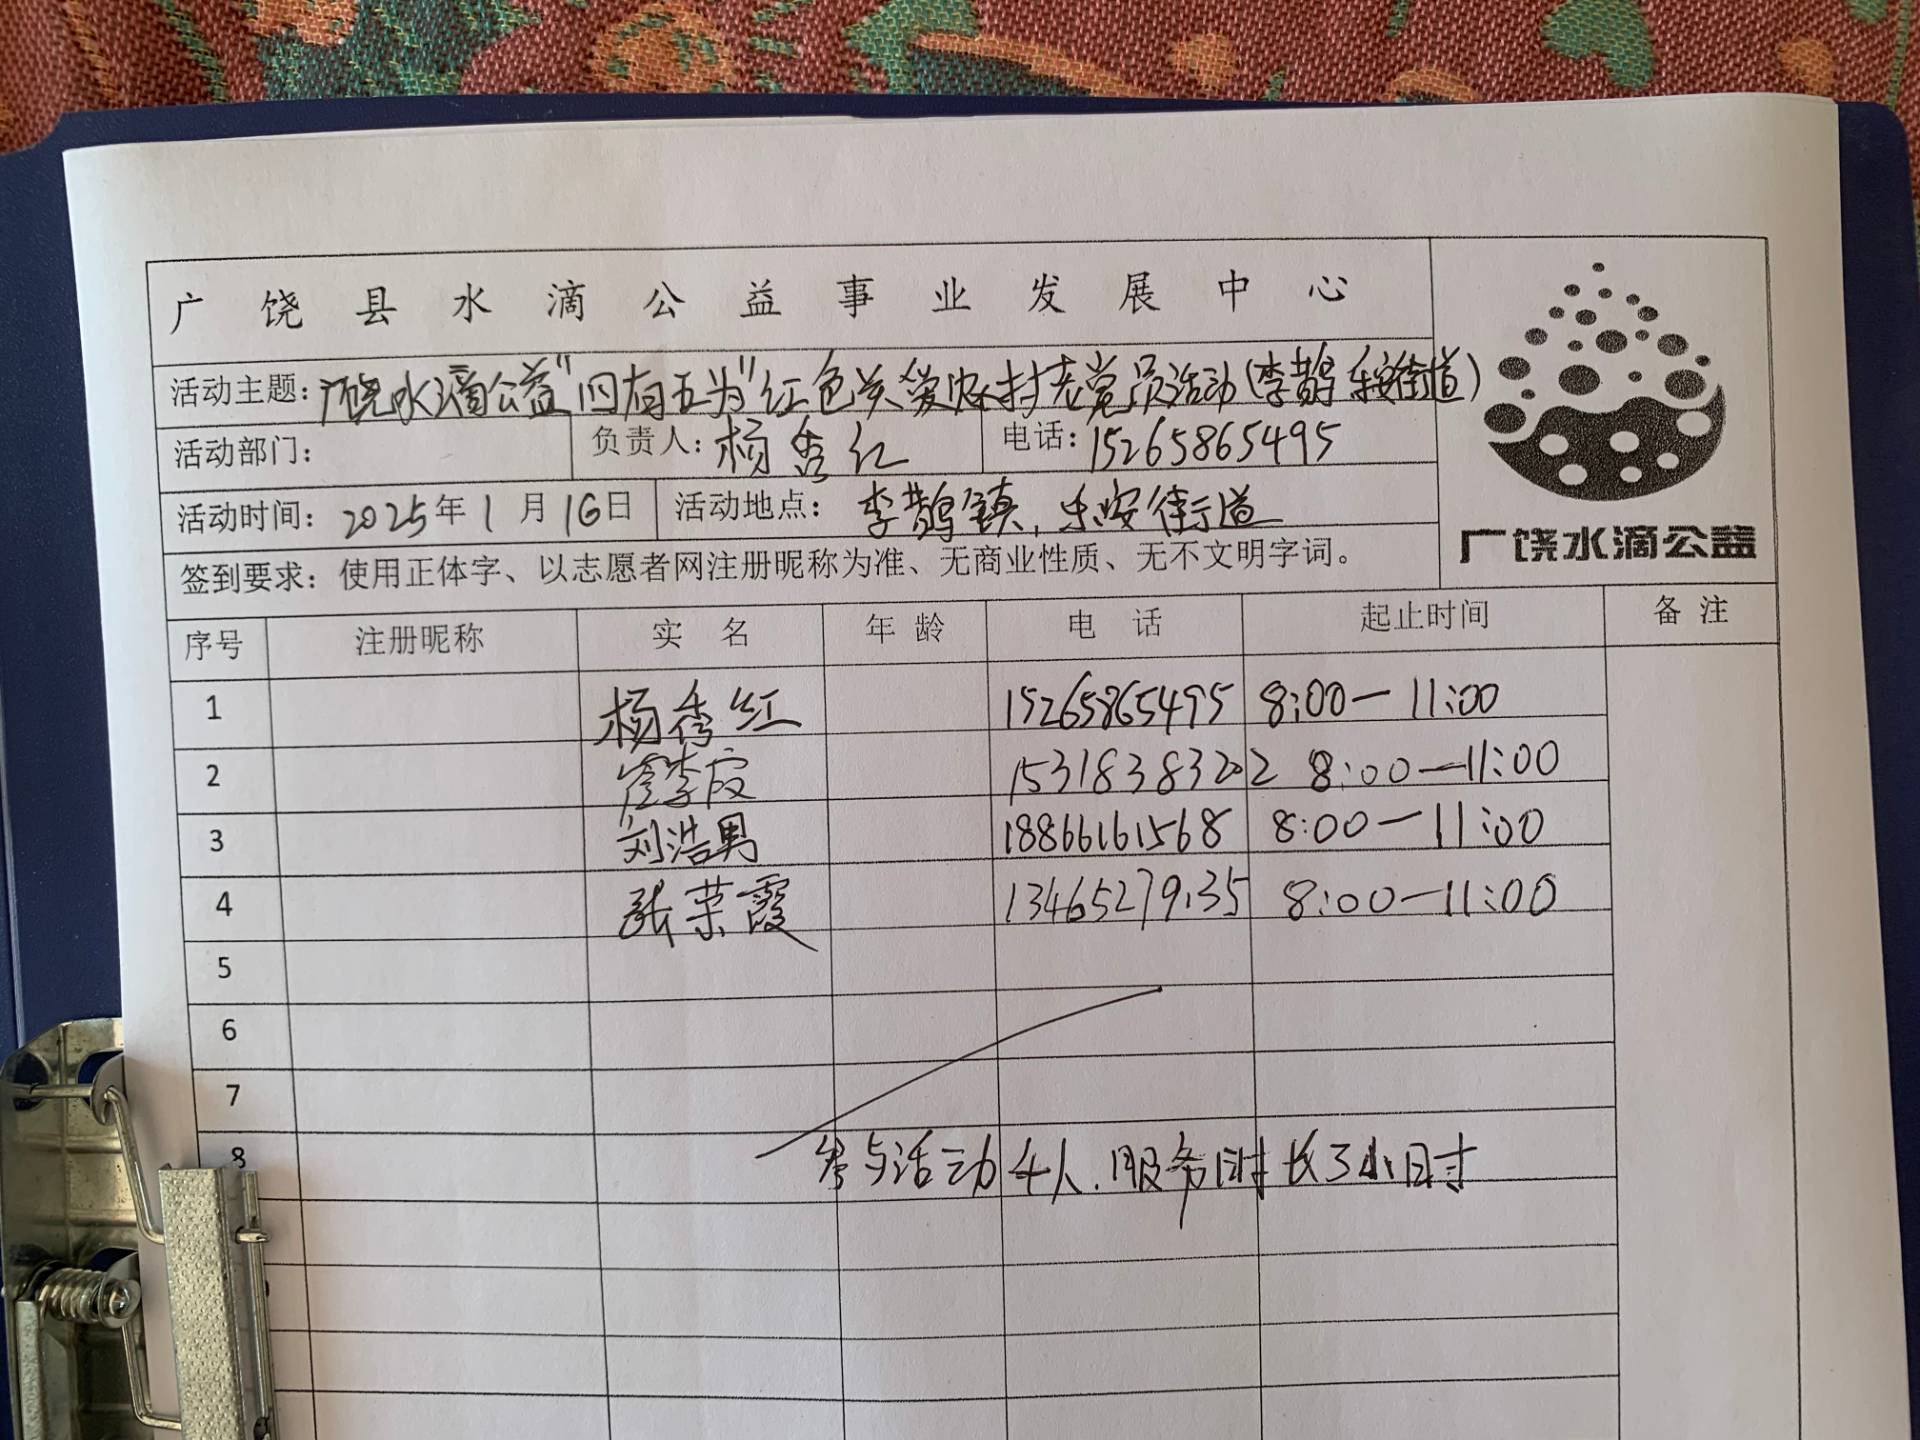 广饶县水滴公益事业发展中心
活动主题：广饶水滴公益"四有五为"红色关爱农村老党员活动(李鹊 乐安街道)
活动部门： 负责人：杨秀红 电话：15265865495
活动时间：2025年1月16日 活动地点：李鹊镇，乐安街道
签到要求：使用正体字、以志愿者网注册昵称为准、无商业性质、无不文明字词。
广饶水滴公益
序号 注册昵称 实名 年龄 电话 起止时间 备注
1 杨秀红 15265865495 8:00—11:00
2 李霞 15318383202 8:00—11:00
3 刘浩男 18866161568 8:00—11:00
4 张荣霞 13465279135 8:00—11:00
5
6
7
8 参与活动4人.服务时长3小时